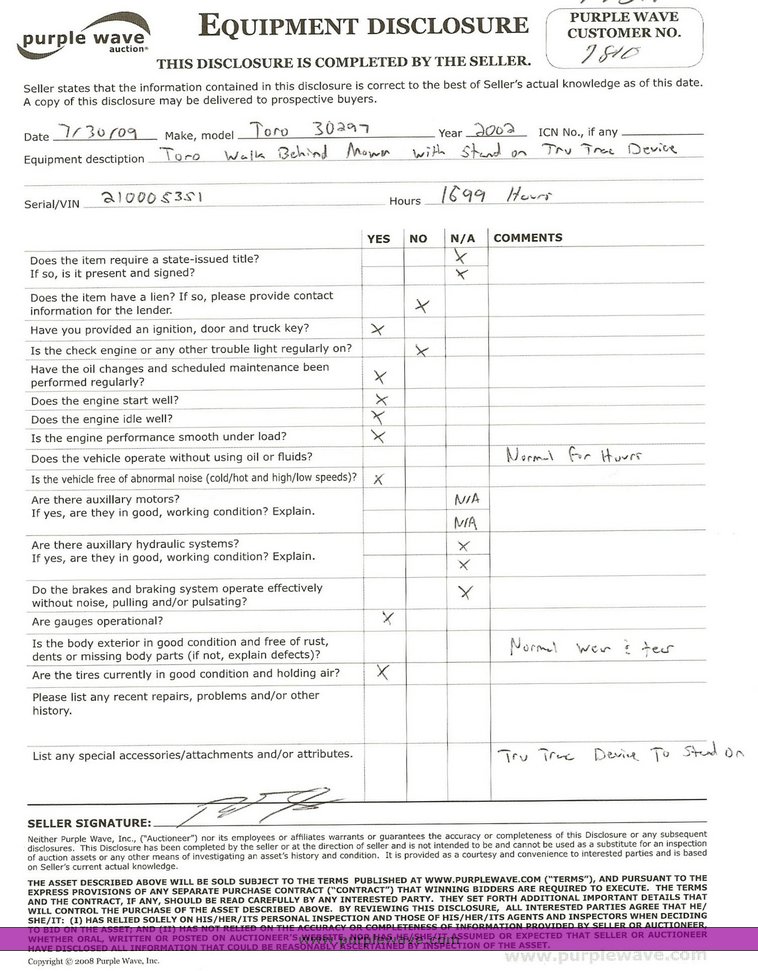 purple wave
auction®
EQUIPMENT DISCLOSURE
THIS DISCLOSURE IS COMPLETED BY THE SELLER.
PURPLE WAVE
CUSTOMER NO.
7810
Seller states that the information contained in this disclosure is correct to the best of Seller's actual knowledge as of this date.
A copy of this disclosure may be delivered to prospective buyers.
Date 7/30/09 Make, model Toro 30297 Year 2002 ICN No., if any
Equipment desctiption Toro Walk Behind Mower with Stand on Tru Trac Device
Serial/VIN 210005351 Hours 1699 Hours
YES NO N/A COMMENTS
Does the item require a state-issued title? X
If so, is it present and signed? X
Does the item have a lien? If so, please provide contact
information for the lender. X
Have you provided an ignition, door and truck key? X
Is the check engine or any other trouble light regularly on? X
Have the oil changes and scheduled maintenance been
performed regularly? X
Does the engine start well? X
Does the engine idle well? X
Is the engine performance smooth under load? X
Does the vehicle operate without using oil or fluids? Normal For Hours
Is the vehicle free of abnormal noise (cold/hot and high/low speeds)? X
Are there auxillary motors? N/A
If yes, are they in good, working condition? Explain. N/A
Are there auxillary hydraulic systems? X
If yes, are they in good, working condition? Explain. X
Do the brakes and braking system operate effectively
without noise, pulling and/or pulsating? X
Are gauges operational? X
Is the body exterior in good condition and free of rust,
dents or missing body parts (if not, explain defects)? Normal wear & tear
Are the tires currently in good condition and holding air? X
Please list any recent repairs, problems and/or other
history.
List any special accessories/attachments and/or attributes. Tru Trac Device To Stand On
SELLER SIGNATURE:
Neither Purple Wave, Inc., ("Auctioneer") nor its employees or affiliates warrants or guarantees the accuracy or completeness of this Disclosure or any subsequent
disclosures. This Disclosure has been completed by the seller or at the direction of seller and is not intended to be and cannot be used as a substitute for an inspection
of auction assets or any other means of investigating an asset's history and condition. It is provided as a courtesy and convenience to interested parties and is based
on Seller's current actual knowledge.
THE ASSET DESCRIBED ABOVE WILL BE SOLD SUBJECT TO THE TERMS PUBLISHED AT WWW.PURPLEWAVE.COM ("TERMS"), AND PURSUANT TO THE
EXPRESS PROVISIONS OF ANY SEPARATE PURCHASE CONTRACT ("CONTRACT") THAT WINNING BIDDERS ARE REQUIRED TO EXECUTE. THE TERMS
AND THE CONTRACT, IF ANY, SHOULD BE READ CAREFULLY BY ANY INTERESTED PARTY. THEY SET FORTH ADDITIONAL IMPORTANT DETAILS THAT
WILL CONTROL THE PURCHASE OF THE ASSET DESCRIBED ABOVE. BY REVIEWING THIS DISCLOSURE, ALL INTERESTED PARTIES AGREE THAT HE/
SHE/IT: (I) HAS RELIED SOLELY ON HIS/HER/ITS PERSONAL INSPECTION AND THOSE OF HIS/HER/ITS AGENTS AND INSPECTORS WHEN DECIDING
TO BID ON THE ASSET; AND (II) HAS NOT RELIED ON THE ACCURACY OR COMPLETENESS OF INFORMATION PROVIDED BY SELLER OR AUCTIONEER,
WHETHER ORAL, WRITTEN OR POSTED ON AUCTIONEER'S WEBSITE, NOR HAS HE/SHE/IT ASSUMED OR EXPECTED THAT SELLER OR AUCTIONEER
HAVE DISCLOSED ALL INFORMATION THAT COULD BE REASONABLY ASCERTAINED BY INSPECTION OF THE ASSET.
www.purplewave.com
www.purplewave.com
Copyright © 2008 Purple Wave, Inc.